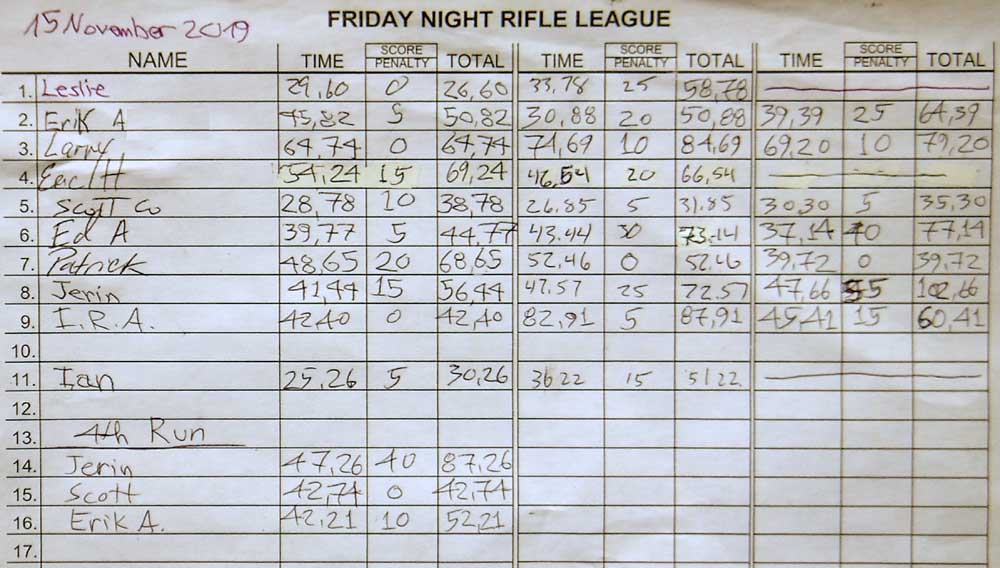 15 November 2019
FRIDAY NIGHT RIFLE LEAGUE
NAME TIME SCORE PENALTY TOTAL TIME SCORE PENALTY TOTAL TIME SCORE PENALTY TOTAL
1. Leslie 29,60 0 26,60 33,78 25 58,78
2. Erik A 45,82 5 50,82 30,88 20 50,88 39,39 25 64,39
3. Larry 64,74 0 64,74 74,69 10 84,69 69,20 10 79,20
4. 54,24 15 69,24 46,54 20 66,54
5. Scott Co 28,78 10 38,78 26.85 5 31.85 30,30 5 35,30
6. Ed A 39,77 5 44,77 43.44 30 73.44 37,14 40 77,14
7. Patrick 48,65 20 68,65 52.46 0 52.46 39,72 0 39,72
8. Jerin 41,44 15 56,44 47.57 25 72.57 47,66 55 102,66
9. I.R.A. 42,40 0 42,40 82,91 5 87,91 45,41 15 60,41
10.
11. Ian 25,26 5 30,26 36 22 15 51 22
12.
13. 4th Run
14. Jerin 47,26 40 87,26
15. Scott 42,74 0 42,74
16. Erik A. 42,21 10 52,21
17.